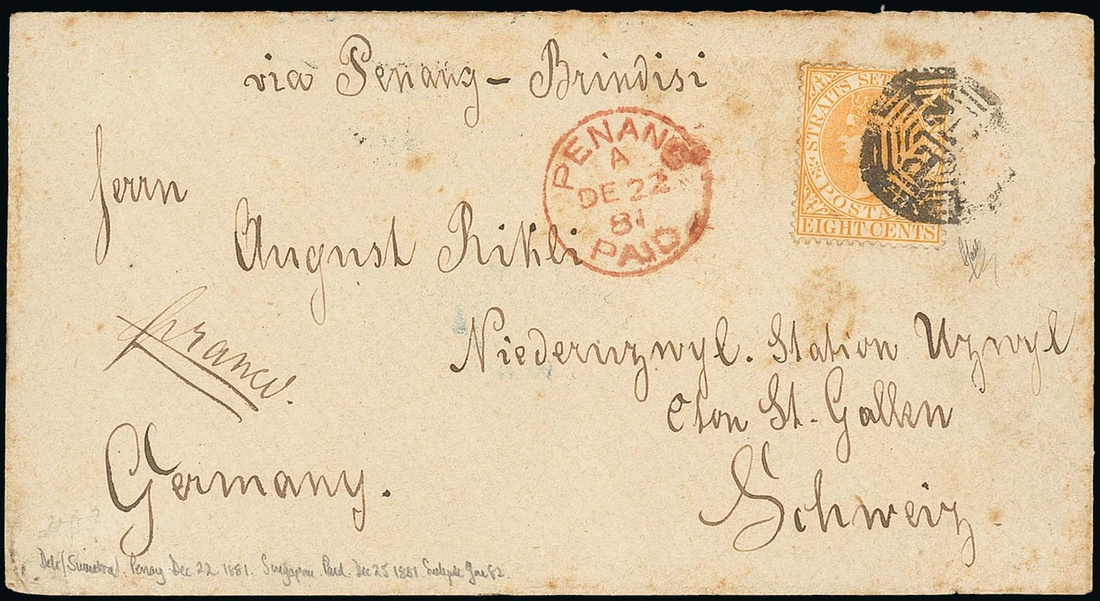 via Penang - Brindisi
STRAITS SET
POSTA
EIGHT CENTS
PENANG
A
DE 22
81
PAID
Herrn
August Rikli
franco.
Niederuzwyl. Station Uzwyl
Cton St. Gallen
Germany.
Schweiz
Deli (Sumatra). Penang Dec 22 1881. Singapore Paid. Dec 25 1881